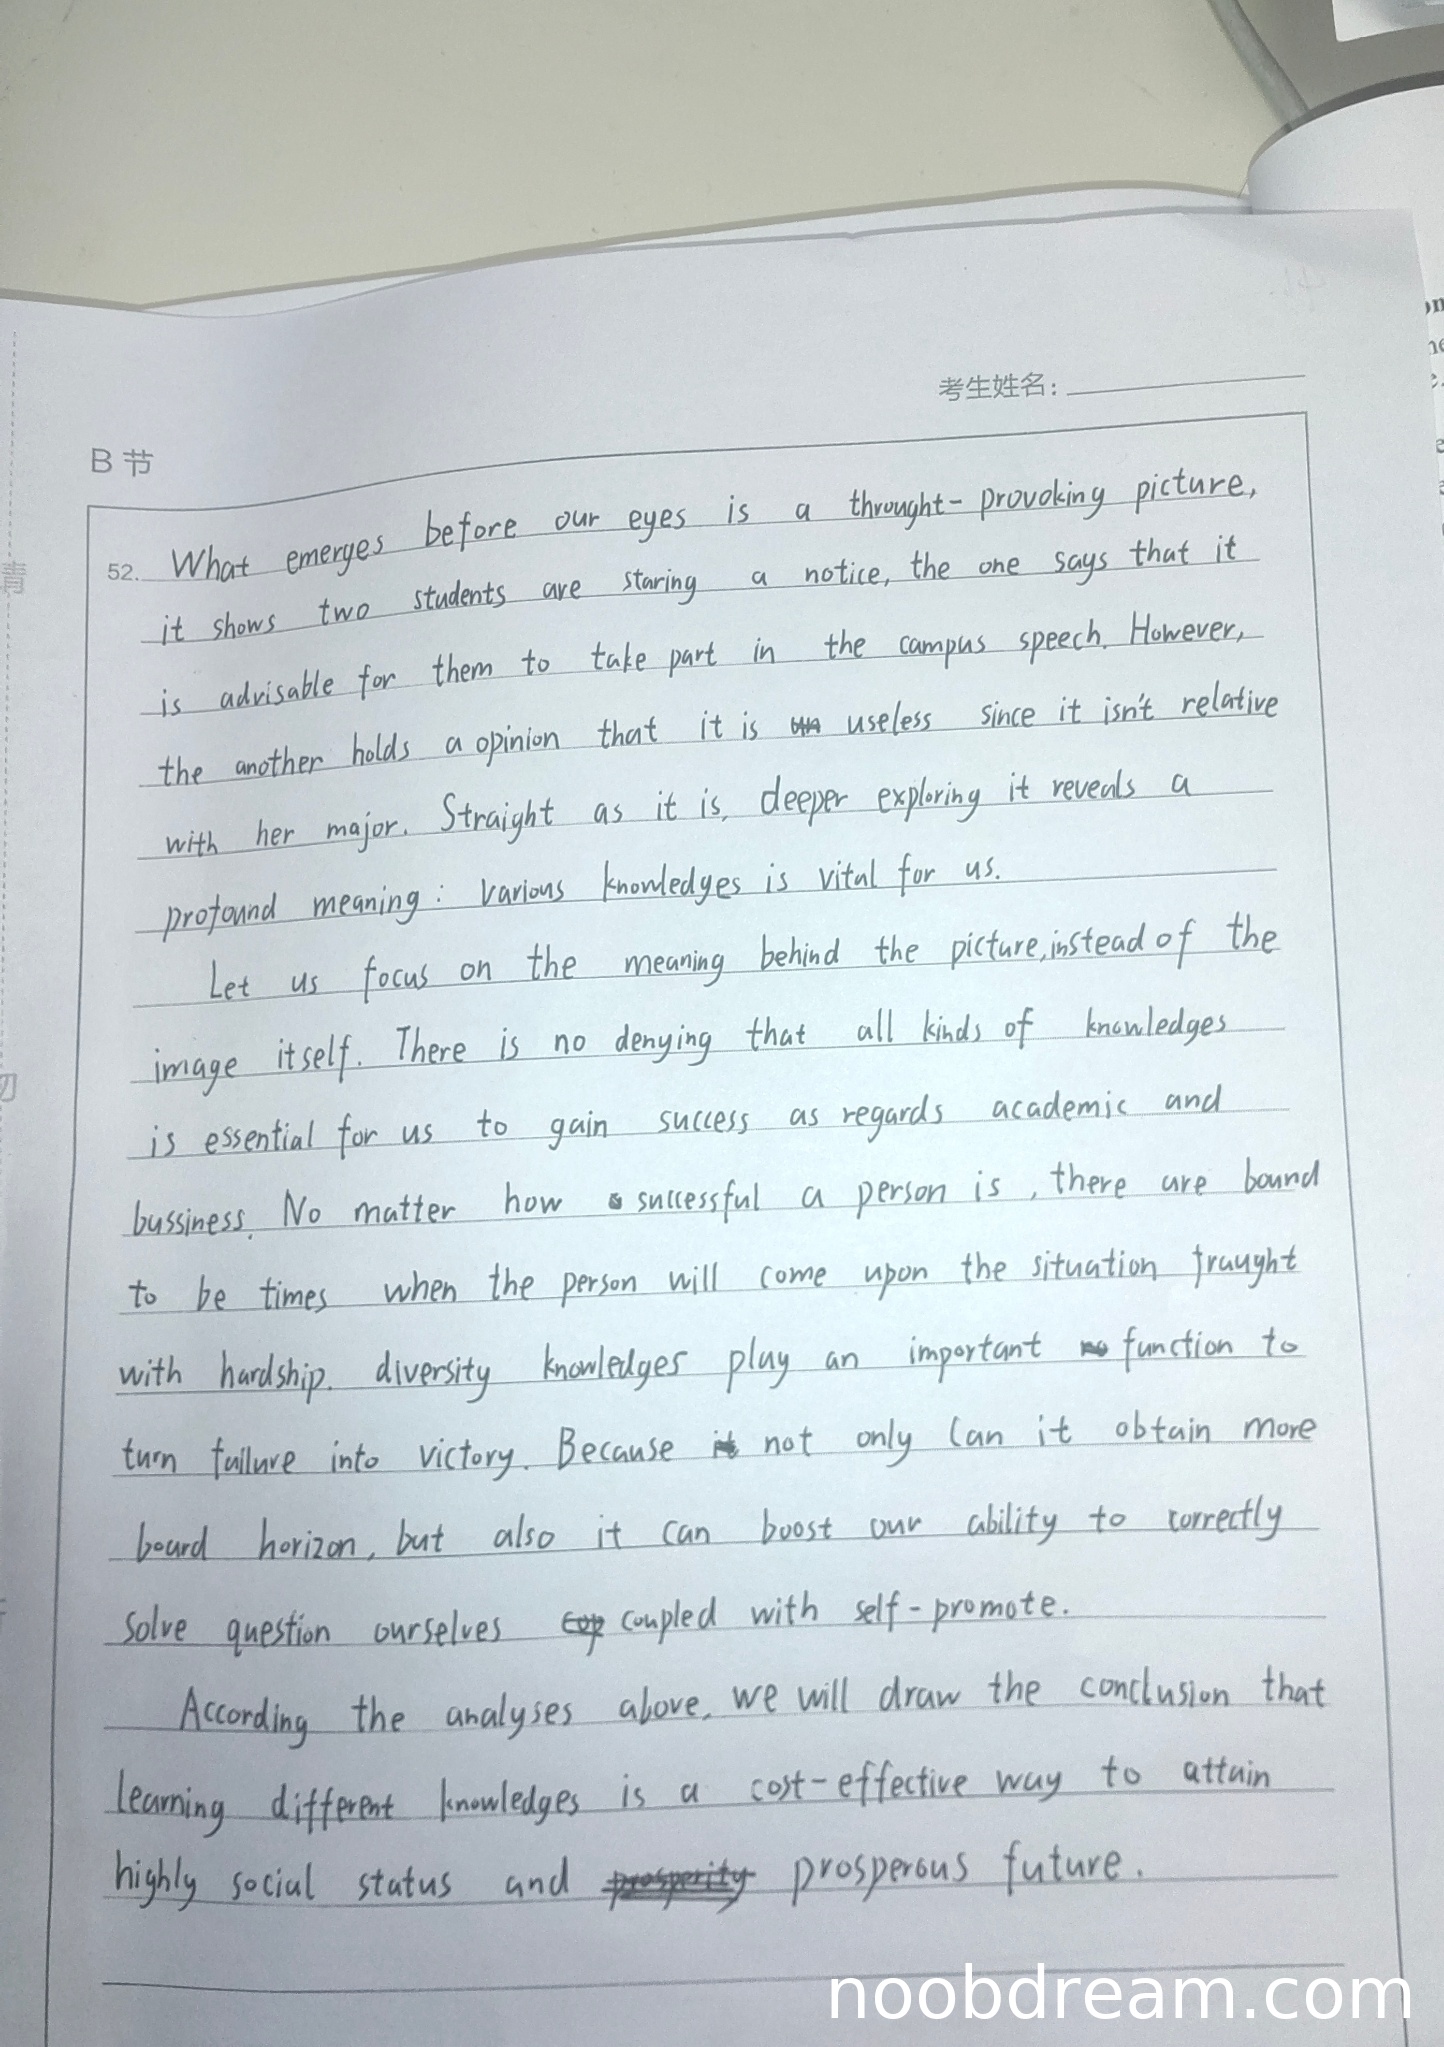 考生姓名：
B 节
52. What emerges before our eyes is a throught-provoking picture,
it shows two students are staring a notice, the one says that it
is advisable for them to take part in the campus speech. However,
the another holds a opinion that it is useless since it isn't relative
with her major. Straight as it is, deeper exploring it reveals a
profound meaning: various knowledges is vital for us.
Let us focus on the meaning behind the picture, instead of the
image itself. There is no denying that all kinds of knowledges
is essential for us to gain success as regards academic and
bussiness. No matter how successful a person is, there are bound
to be times when the person will come upon the situation fraught
with hardship. diversity knowledges play an important function to
turn failure into victory. Because not only can it obtain more
board horizon, but also it can boost our ability to correctly
solve question ourselves coupled with self-promote.
According the analyses above, we will draw the conclusion that
learning different knowledges is a cost-effective way to attain
highly social status and prosperous future.
noobdream.com